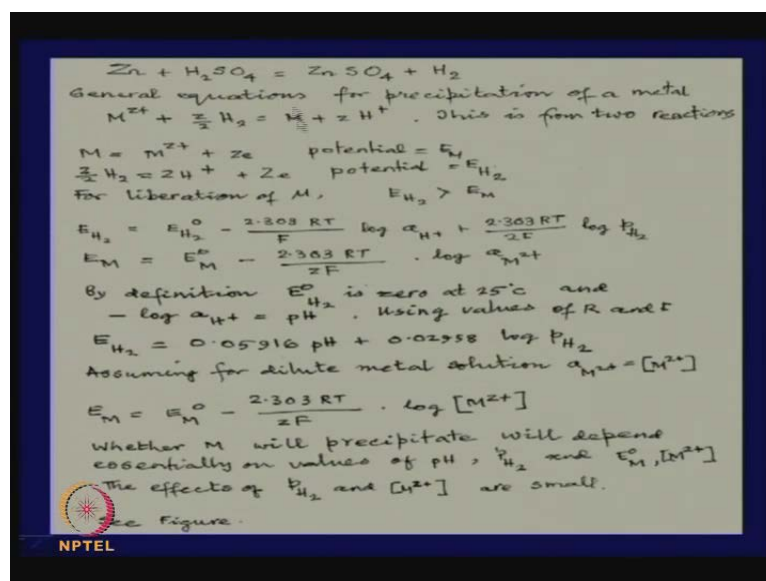 Zn + H₂SO₄ = ZnSO₄ + H₂
General equations for precipitation of a metal
M^{z+} + z/2 H₂ = M + z H⁺ . This is from two reactions
M = M^{z+} + ze potential = E_M
z/2 H₂ = zH⁺ + ze potential = E_{H₂}
For liberation of M, E_{H₂} > E_M
E_{H₂} = E⁰_{H₂} - 2.303 RT/F log a_{H+} + 2.303 RT/2F log p_{H₂}
E_M = E⁰_M - 2.303 RT/zF . log a_{M^{z+}}
By definition E⁰_{H₂} is zero at 25°c and
- log a_{H+} = pH . Using values of R and F
E_{H₂} = 0.05916 pH + 0.02958 log P_{H₂}
Assuming for dilute metal solution a_{M^{z+}} = [M^{z+}]
E_M = E_M⁰ - 2.303 RT/zF . log [M^{z+}]
Whether M will precipitate will depend
essentially on values of pH, p_{H₂} and E⁰_M, [M^{z+}]
The effects of p_{H₂} and [M^{z+}] are small.
See Figure.
NPTEL